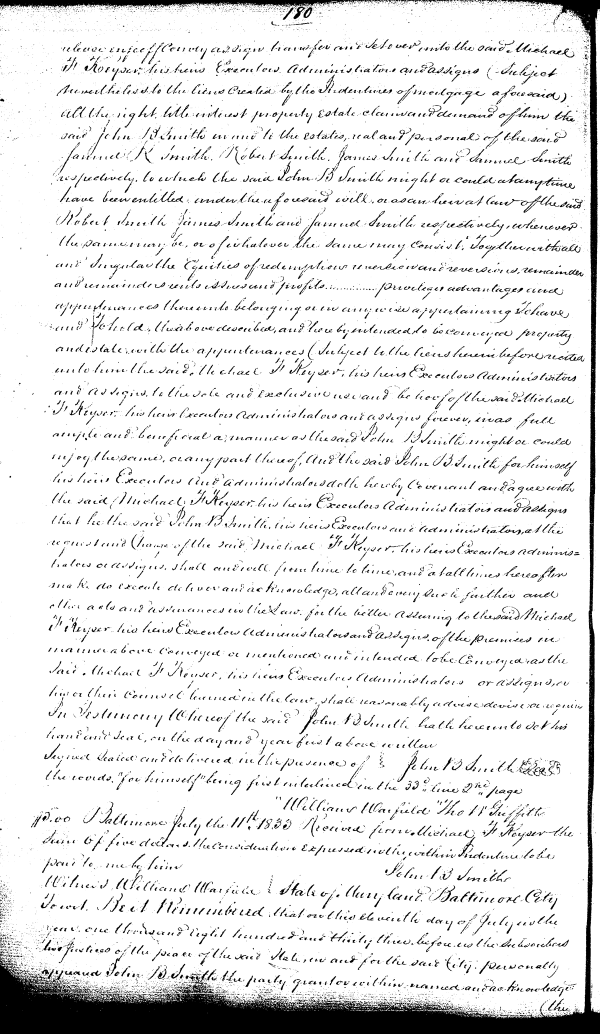 180
release enfeoff Convey assign transfer and Setover, unto the said Michael
F Keyser, his heirs Executors Administrators and assigns (Subject
nevertheless to the liens created by the Indentures of mortgage aforesaid)
all the right, title interest property Estate claim and demand of him the
said John B Smith in and to the estates, real and personal of the said
Samuel R Smith, Robert Smith, James Smith and Samuel Smith
respectively, to which the said John B Smith might or could at any time
have been entitled under the aforesaid will, or as an heir at law of the said
Robert Smith James Smith and Samuel Smith respectively, whenever
the same may be, or of whatever the same may consist; Together with all
and Singular the Equities of redemption reversion and reversions, remainder
and remainders rents issues and profits............ privileges advantages and
appurtenances thereunto belonging or in any wise appertaining To have
and To hold, the above described, and hereby intended to be conveyed property
and estate, with the appurtenances (Subject to the liens herein before recited
unto him the said, Michael F Keyser, his heirs Executors Administrators
and assigns, to the sole and exclusive use and behoof of the said Michael
F Keyser his heirs Executors Administrators and assigns forever, in as full
ample and beneficial a manner as the said John B Smith might or could
enjoy the same, or any part thereof, And the said John B Smith for himself
his heirs Executors and Administrators doth hereby Covenant and agree with
the said Michael F Keyser, his heirs Executors Administrators and assigns
that he the said John B Smith, his heirs Executors and administrators, at the
request and Charge of the said Michael F Keyser, his heirs Executors adminis=
trators or assigns, shall and will from time to time, and at all times hereafter
make do execute deliver and acknowledge, all and every such further and
other acts and assurances in the Law, for the better assuring to the said Michael
F Keyser his heirs Executors Administrators and assigns, of the premises in
manner above Conveyed or mentioned and intended to be Conveyed, as the
Said Michael F Keyser, his heirs Executors Administrators or assigns, or
his or their Counsel learned in the law, shall reasonably advise devise or require
In Testimony Whereof the said John B Smith hath hereunto Set his
hand and seal, on the day and year first above written
Signed Sealed and delivered in the presence of John B Smith Seal
the words, "for himself" being first interlined in the 33d line 2nd page
William Warfield Tho W Griffith
$5.00 Baltimore July the 11th 1833 Received from Michael F Keyser the
Sum of five dollars the consideration expressed in the within Indenture to be
paid to me by him John B Smith
Witness William Warfield State of Maryland, Baltimore City
Towit. Be it Remembered, that on this eleventh day of July in the
year, one thousand eight hundred and thirty three, before us the Subscribers
two Justices of the peace of the said State, in and for the said City: personally
appeared John B Smith the party grantor within named and acknowledge
(the